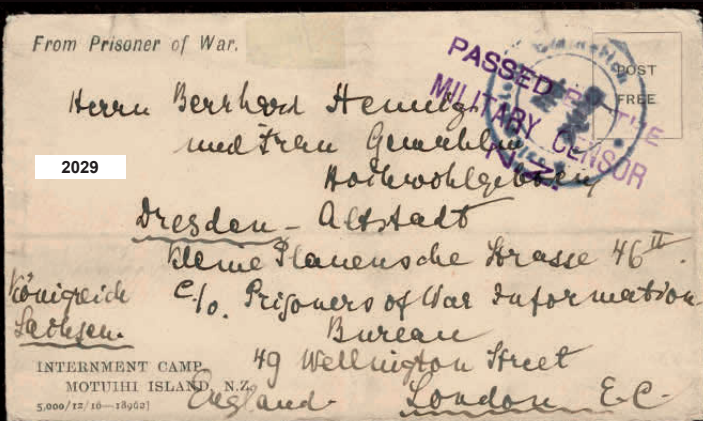 From Prisoner of War.
PASSED BY THE
MILITARY CENSOR
N.Z.
POST
FREE
Herrn Bernhard Hennig
und Frau Gemahlin
Hochwohlgeboren
2029
Dresden - Altstadt
Kleine Plauensche Strasse 46 II.
Königreich
Sachsen.
C/o. Prisoners of War Information
Bureau
49 Wellington Street
England. London E.C.
INTERNMENT CAMP,
MOTUIHI ISLAND, N.Z.
5,000/12/16—18962]